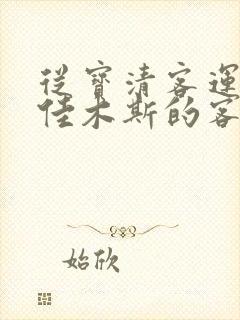 從寶清客運
佳木斯的客
始欣